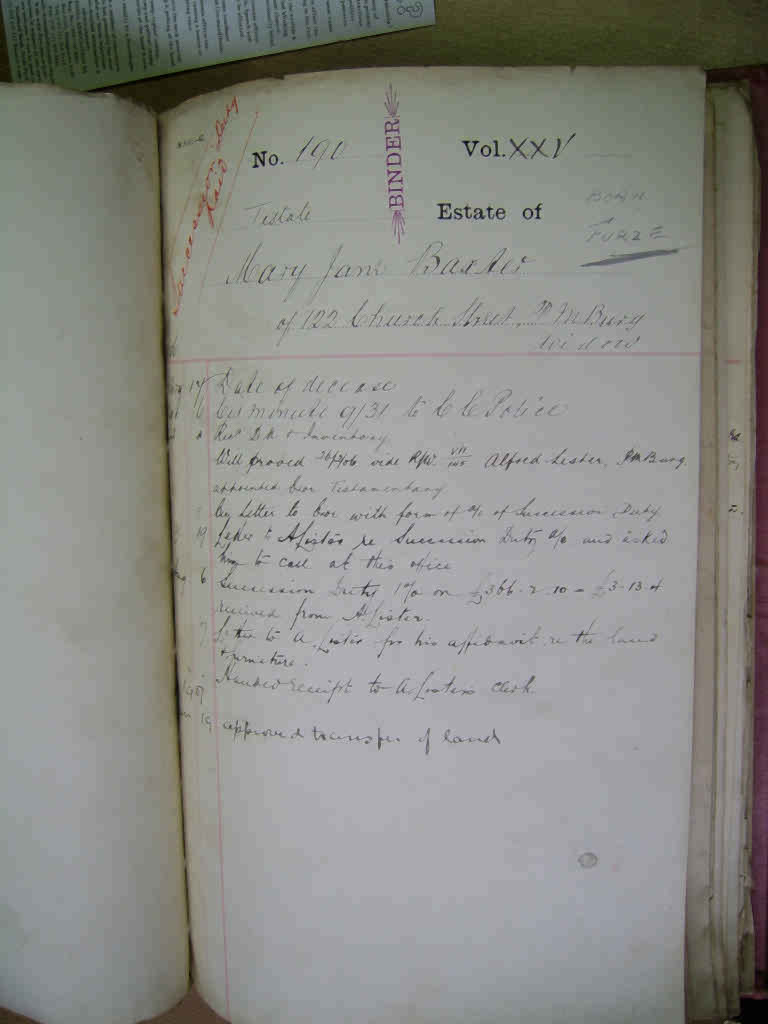 Succession Duty
Paid
No. 190 BINDER Vol. XXV
Testate Estate of BORN
FURZE
Mary Jane Baxter
of 122 Church Street, P M Burg
widow
17 Date of decease
6 minute 9/31 to C C Police
Recd D N & Inventory
Will proved vide Alfred Lister, PMBurg.
appointed Exor Testamentary
9 Letter to Exor with form of a/c of Succession Duty
19 Letter to A Lister re Succession Duty a/c and asked
him to call at this office
6 Succession Duty 1% on £366-2-10 = £3-13-4
received from A Lister.
7 Letter to A Lister for his affidavit re the land
& furniture.
Handed receipt to A Lister's clerk.
1907
19 approved transfer of land